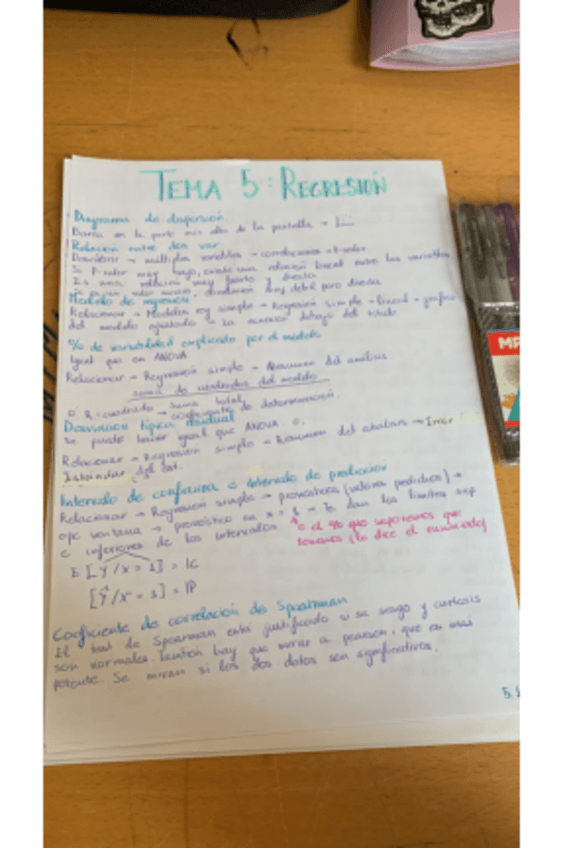 TEMA 5: REGRESIÓN
Diagrama de dispersión.
Barra en la parte más alta de la pantalla →
Relación entre dos var
Describir → multiples variables → correlaciones → P-valor
Si P-valor muy bajo, existe una relación lineal entre las variables
Es una relación muy fuerte y directa
muy debil pero directa
Modelo de regresión
Relacionar → Modelos reg simple → Regresión simple → lineal → gráfico
del modelo ajustado → La ecuación debajo del titulo
% de variabilidad explicado por el modelo
Igual que en ANOVA
Relacionar → Regresión simple → Resumen del análisis
suma de cuadrados del modelo
suma total
o R-cuadrado → coeficiente de determinación.
Desviación típica residual
Se puede hacer igual que ANOVA o.
Relacionar → Regresión simple → Resumen del análisis → Error
Estándar del est.
Intervalo de confianza o Intervalo de predicción
Relacionar → Regresión simple → pronósticos (valores predichos) →
opc ventana → pronóstico en x = 1 → Te dan los límites sup
e inferiores de los intervalos
o el % que suponemos que
tenemos (lo dice el enunciado)
E [Y/x = 1] = IC
[Y/x = 1] = IP
Coeficiente de correlación de Spearman
El test de Spearman está justificado si su sesgo y curtosis
son normales. También hay que mirar a pearson, que es más
potente. Se miran si los dos datos son significativos.
5.1